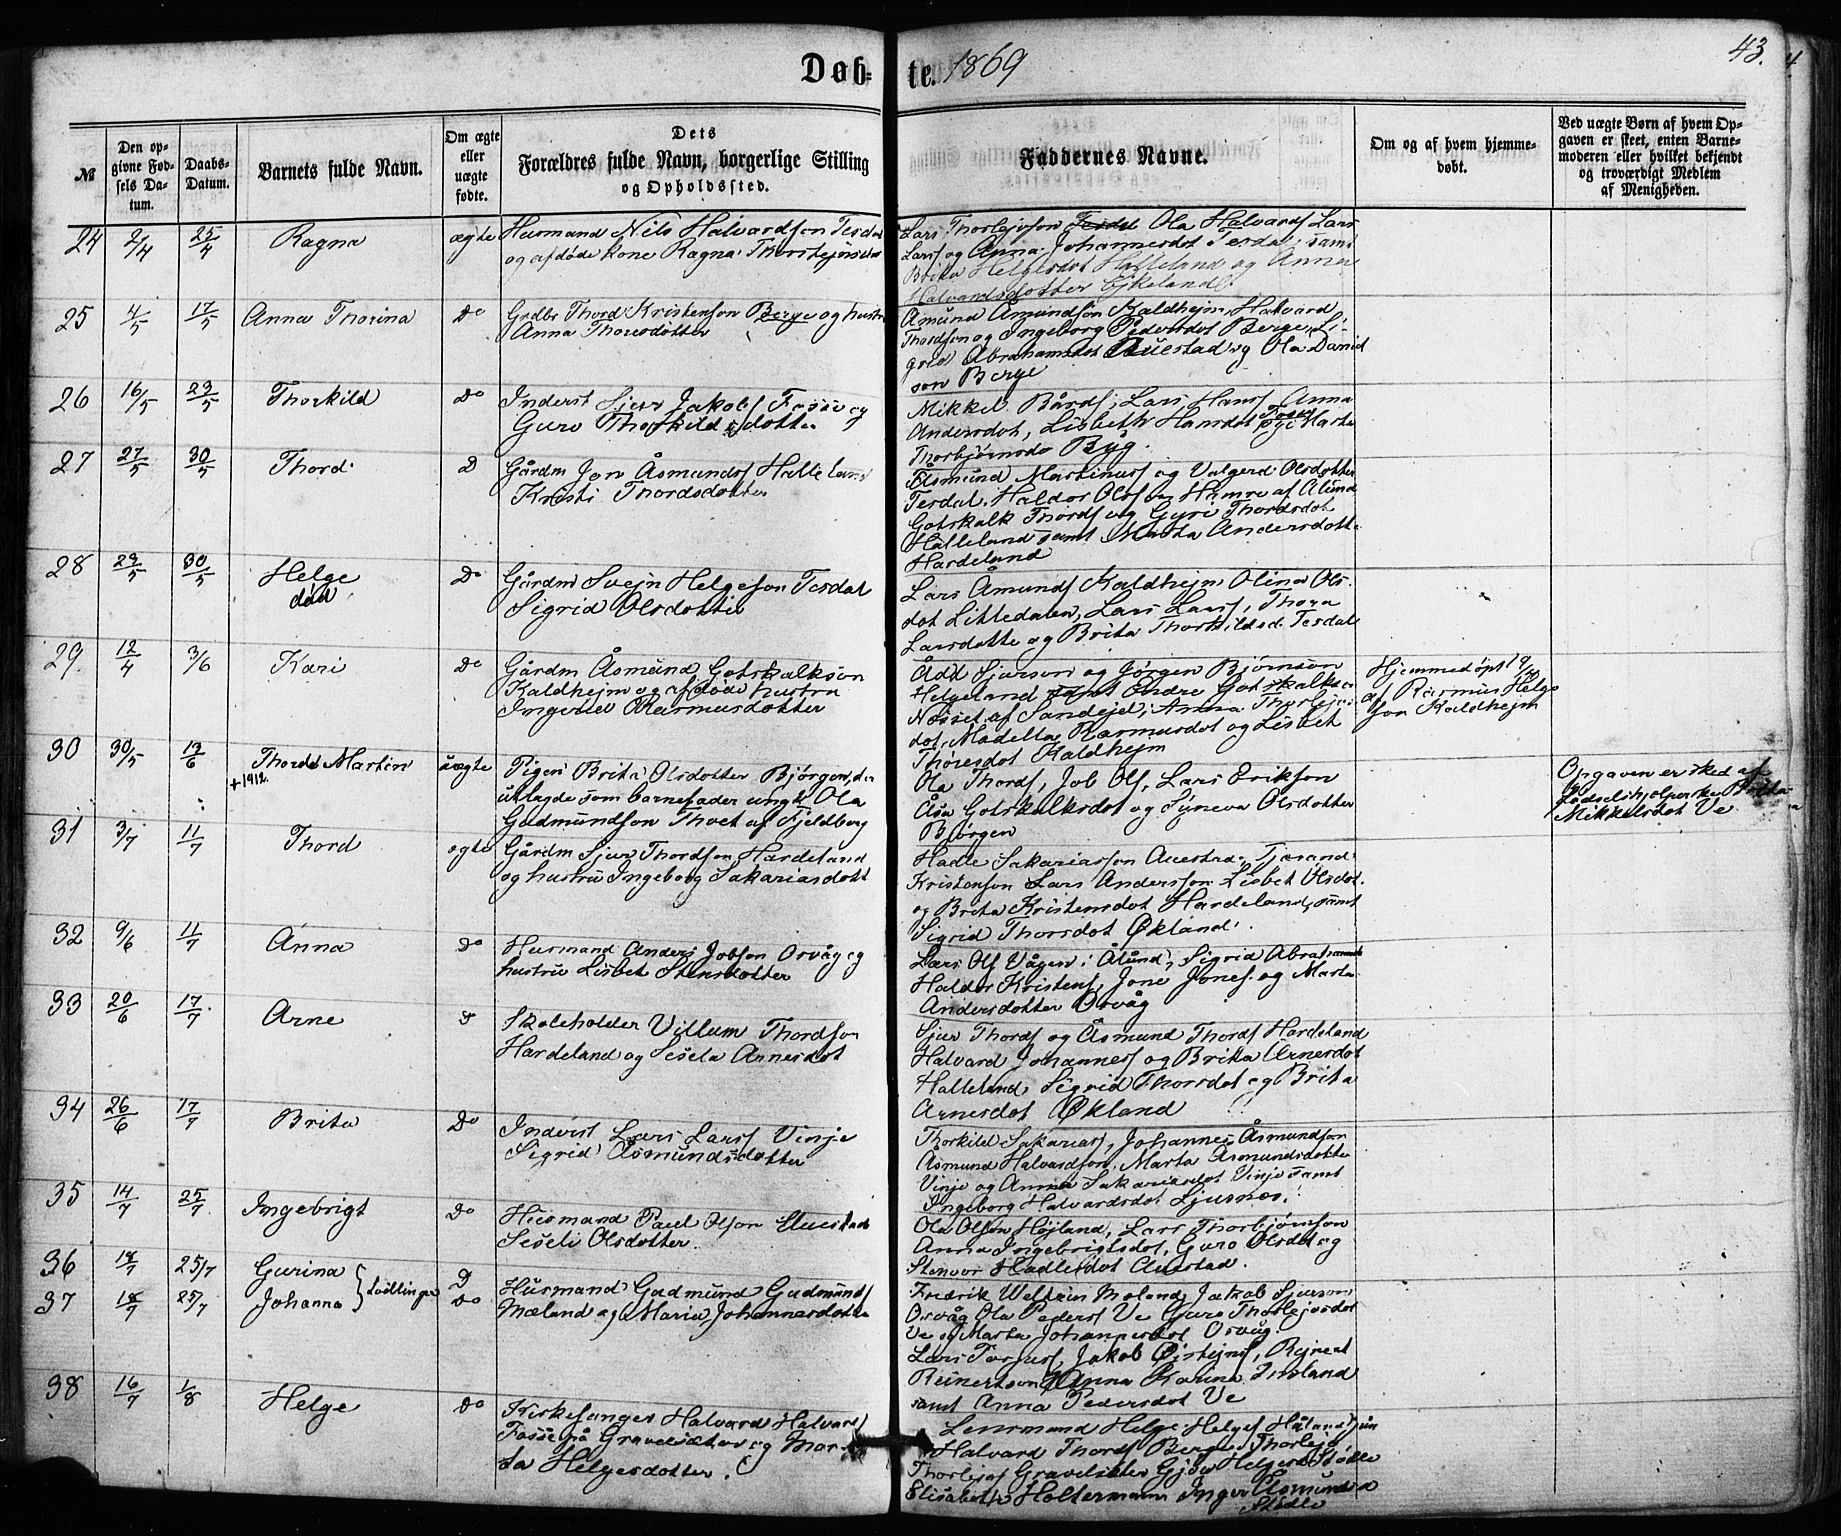 Døb-
te. 1869
43.
№
Den op-
givne Fød-
sels Da-
tum.
Daabs-
Datum.
Barnets fulde Navn.
Om ægte
eller
uægte
fødte.
Dets
Forældres fulde Navn, borgerlige Stilling
og Opholdssted.
Faddernes Navne.
Om og af hvem hjemme-
døbt.
Ved uægte Børn af hvem Op-
gaven er skeet, enten Barne-
moderen eller hvilket bekjendt
og troværdigt Medlem
af Menigheden.
24 2/4 25/4 Ragna ægte
Husmand Nils Halvardson Tesdal
og afdøde kone Ragna
Lars Thorlejvson Ola Halvards Lars
Lars og Anna Johannesdot Tesdal samt
Brita Helgesdot Halleland og Anna
Halvardsdotter Ejkeland
25 4/5 17/5 Anna Thorina Do
Grdbr Thord Kristenson Berge og hustru
Anna Thoresdotter
Åmund Åmundson Kaldhejm, Halvard
Thordson og Ingeborg Pedersdot Berge, Si-
grid Abrahamsdot Auestad og Ola Daniel
son Berge
26 16/5 23/5 Thorkild Do
Inderst Sjur Jakobs Fosse og
Guro Thorkildsdotter
Mikkel Bårds, Lars Hans, Anna
Andersdot, Lisbeth Hansdot Fosse og Marta
Thorbjørnsdo Byg.
27 27/5 30/5 Thord D
Gårdm Jon Åsmunds Halleland
Kristi Thordsdotter
Åsmund Martinus og Valgerd Olsdotter
Tesdal, Haldor Olson Hamre af Ålund
Gotskalk Thords og Gyri Thordsdot
Halleland samt Marta Andersdotte
Hardeland
28 23/5 30/5 Helge Do
død
Gårdm Svejn Helgeson Tesdal
Sigrid Olsdotter
Lars Åmunds Kaldhejm Olina Ols-
dot Littledalen, Lars Lars, Thora
Larsdotte og Brita Thorkildsd. Tesdal
29. 12/4 3/6 Kari Do
Gårdm Åsmund Gotskalkson
Kaldhejm og afdøde hustru
Ingerid Rasmusdotter
Ådd Sjurson og Jørgen Bjørnson
Helgeland samt Endre Gotskalkson
Nøsset af Sandejd, Anna Thorlejvs-
dot, Madella Rasmusdot og Lisbet
Thoresdot Kaldhejm
Hjemmedøpt
af Rasmus Helge
son Kaldhejm
30 30/5 13/6 Thord Martin uægte
+1912.
Pigen Brita Olsdotter Bjørgen, der
utlagde som barnefader ungk Ola
Gudmundson Thvet af Fjeldberg
Ola Thords, Job Ols, Lars Erikson
Åsa Gotskalksdot og Syneva Olsdotter
Bjørgen
Opgaven er sked af
Fødselshjelperske Brita
Mikkelsdot Ve
31 3/7 11/7 Thord egte
Gårdm Sjur Thordson Hardeland
og hustru Ingeborg Sakariasdott
Hadle Sakariasson Auestad, Tjerand
Kristenson Lars Anderson Lisbet Olsdot.
og Brita Kristensdot Hardeland, samt
Sigrid Thorsdot Økland.
32 9/6 11/7 Anna Do
Husmand Anders Jobson Orvåg og
hustru Lisbet Stensdotter
Lars Ols Vågen i Ålund, Sigrid Abrahamsd
Haldor Kristens, Jone Jones og Marta
Andersdotter Orvåg
33 20/6 17/7 Arne D
Skoleholder Villum Thordson
Hardeland og Seselia Arnesdot
Sjur Thords og Åsmund Thords Hardeland
Halvard Johannes og Brita Arnesdot
Halleland Sigrid Thorsdot og Brita
Arnesdot Økland
34 26/6 17/7 Brita Do
Inderst Lars Lars Vinje
Sigrid Åsmundsdotter
Thorkild Sakarias, Johannes Åsmundson
Åsmund Halvardson, Marta Åsmundsdotter
Vinje og Anna Sakariasdot Vinje samt
Ingeborg Halvardsdot Ljusnes.
35 14/7 25/7 Ingebrigt Do
Husmand Paul Olson Auestad
Seseli Olsdotter.
Ola Olson Højland, Lars Thorbjørnson
Anna Ingebrigtsdot, Guro Olsdot og
Stenvor Hadlesdot Auestad.
36 18/7 25/7 Gurina D
37 18/7 25/7 Johanna Tvillinger Do
Husmand Gudmund Gudmunds
Mæland og Maria Johannesdotte
Fredrik Moland Jakob Sjurson
Orvåg Ola Peders Ve Guro Thorlejvsdot
Ve og Marta Johannesdot Orvåg.
38 16/7 1/8 Helge Do
Kirkesanger Halvard Halvards
Fosse på Gravelsæter og Mar-
ta Helgesdotter.
Lars Jakob Østejns, Rejnert
Reinertson, Anna Karina
samt Anna Pedersdot Ve
Lensmand Helge Helges Håland
Halvard Thords Berge Thorlejv
Thorlejvs Gravelsæter Helgesd Stødle
Elisabeth Holtermann Inger Åsmundsd
Stødle